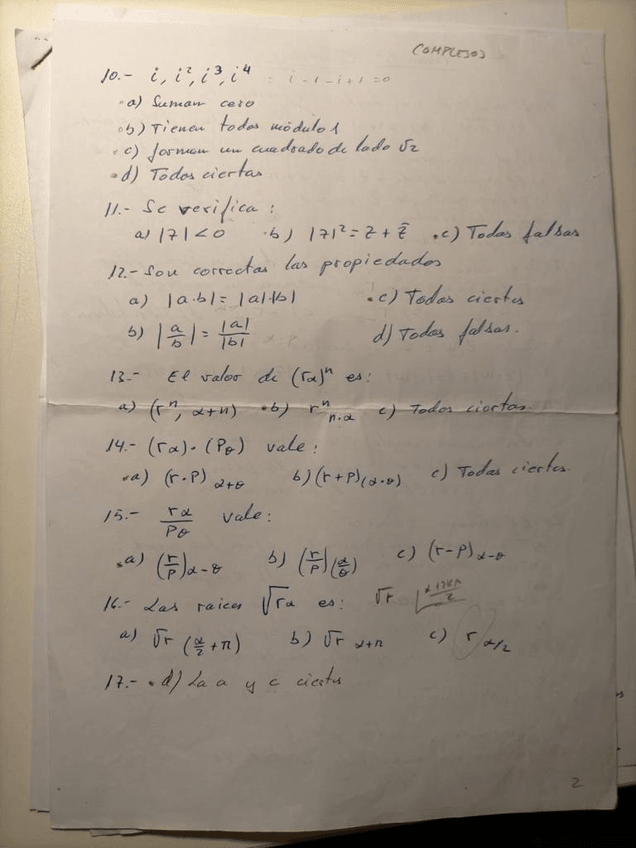 COMPLEJOS
10.- i, i², i³, i⁴ = i - 1 - i + 1 = 0
• a) Suman cero
• b) Tienen todos módulo 1
• c) forman un cuadrado de lado √2
• d) Todos ciertas
11.- Se verifica :
a) |z| < 0 • b) |z|² = z + z̄ • c) Todas falsas
12.- Son correctas las propiedades
a) |a·b| = |a|·|b| • c) Todas ciertas
b) |a/b| = |a|/|b| d) Todas falsas.
13.- El valor de (rα)ⁿ es:
a) (rⁿ, α+n) • b) rⁿ n·α c) Todas ciertas
14.- (rα) · (Pθ) vale :
• a) (r·P) α+θ b) (r+P)(α·θ) c) Todas ciertas.
15.- rα/Pθ vale:
• a) (r/P)α-θ b) (r/P)(α/θ) c) (r-P)α-θ
16.- Las raices √rα es: √r
a) √r (α/2 + π) b) √r α+π c) r α/2
17.- • d) La a y c ciertas
2